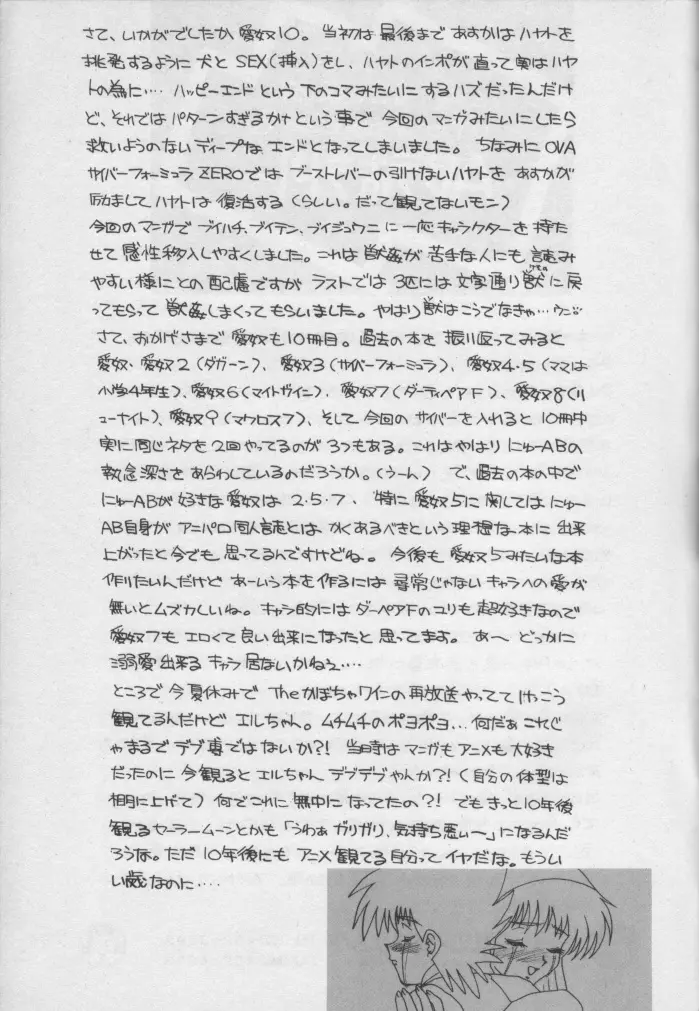 さて、いかがでしたか愛奴10。当初は最後まであすかはハヤトを
挑発するように犬とSEX(挿入)をし、ハヤトのインポが直って実はハヤ
トの為に…. ハッピーエンドという下のコマみたいにするハズだったんだけ
ど、それではパターンすぎるかナという事で今回のマンガみたいにしたら
救いようのないディープな エンドとなってしまいました。ちなみにOVA
サイバーフォーミュラZEROでは ブーストレバーの引けないハヤトを あすかが
励まして ハヤトは 復活する(らしい。だって観てないモン)
今回のマンガで ブイハチ、ブイテン、ブイジュウニに一応キャラクターを持た
せて感性移入しやすくしました。これは獣姦が苦手な人にも読み
やすい様にとの配慮ですが ラストでは3匹には文字通り獣に戻
ってもらって獣姦しまくってもらいました。やはり獣はこうでなきゃ…
さて、おかげさまで 愛奴も10冊目。過去の本を振り返ってみると
愛奴・愛奴2(ダガーン)、愛奴3(サイバーフォーミュラ)、愛奴4・5(ママは
小学4年生)、愛奴6(マイトガイン)、愛奴7(ダーティペアF)、愛奴8(リ
ューナイト)、愛奴9(マクロス7)、そして今回のサイバーを入れると10冊中
実に同じネタを2回やってるのが3つもある。これはやはり にゅーABの
執念深さを あらわしているのだろうか。(うーん) で、過去の本の中で
にゅーABが好きな愛奴は 2・5・7、特に愛奴5に関してはにゅー
AB自身が アニパロ同人誌とは かくあるべきという理想な本に出来
上がったと今でも思ってるんですけどね。今後も愛奴5みたいな本
作りたいんだけど あーいう本を作るには 尋常じゃない キャラへの愛が
無いとムズカしいね。キャラ的には ダーペアFのユリも超好きなので
愛奴7も エロくて良い出来になったと思ってます。あ〜 どっかに
溺愛出来る キャラ居ないかねぇ….
ところで 今夏休みで Theかぼちゃワインの再放送やってて けっこう
観てるんだけど エルちゃん。ムチムチのポヨポヨ…何だぁこれじ
ゃまるで デブ専ではないか?! 当時は マンガもアニメも大好き
だったのに 今観ると エルちゃん デブデブやんか?!(自分の体型は
棚に上げて)何でこれに無中になってたの?! でもきっと10年後
観るセーラームーンとかも「うわぁガリガリ、気持ち悪ぃ〜」になるんだ
ろうな。ただ10年後にも アニメ観てる自分ってイヤだな。もういい
い歳なのに….